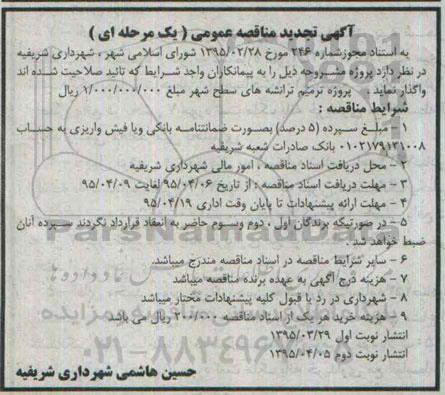 آگهی تجدید مناقصه عمومی ( یک مرحله ای )
به استناد مجوزشماره ۲۴۶ مورخ ۱۳۹۵/۰۲/۲۸ شورای اسلامی شهر ، شهرداری شریفیه
در نظر دارد پروژه مشروحه ذیل را به پیمانکاران واجد شرایط که تائید صلاحیت شده اند
واگذار نماید . پروژه ترمیم ترانشه های سطح شهر مبلغ ۱/۰۰۰/۰۰۰/۰۰۰ ریال
شرایط مناقصه :
۱ - مبلغ سپرده (۵ درصد) بصورت ضمانتنامه بانکی ویا فیش واریزی به حساب
۰۱۰۲۱۷۹۱۳۱۰۰۸ بانک صادرات شعبه شریفیه
۲ - محل دریافت اسناد مناقصه ، امور مالی شهرداری شریفیه
۳ - مهلت دریافت اسناد مناقصه : از تاریخ ۹۵/۰۴/۰۶ لغایت ۹۵/۰۴/۰۹
۴ - مهلت ارائه پیشنهادات تا پایان وقت اداری ۹۵/۰۴/۱۹
۵ - در صورتیکه برندگان اول ، دوم وسوم حاضر به انعقاد قرارداد نگردند سپرده آنان
ضبط خواهد شد .
۶ - سایر شرایط مناقصه در اسناد مناقصه مندرج میباشد.
۷ - هزینه درج آگهی به عهده برنده مناقصه میباشد
۸ - شهرداری در رد یا قبول کلیه پیشنهادات مختار میباشد
۹ - هزینه خرید هر یک از اسناد مناقصه ۲۰۰/۰۰۰ ریال می باشد
انتشار نوبت اول ۱۳۹۵/۰۳/۲۹
انتشار نوبت دوم ۱۳۹۵/۰۴/۰۵
حسین هاشمی شهرداری شریفیه
ParsNamadData